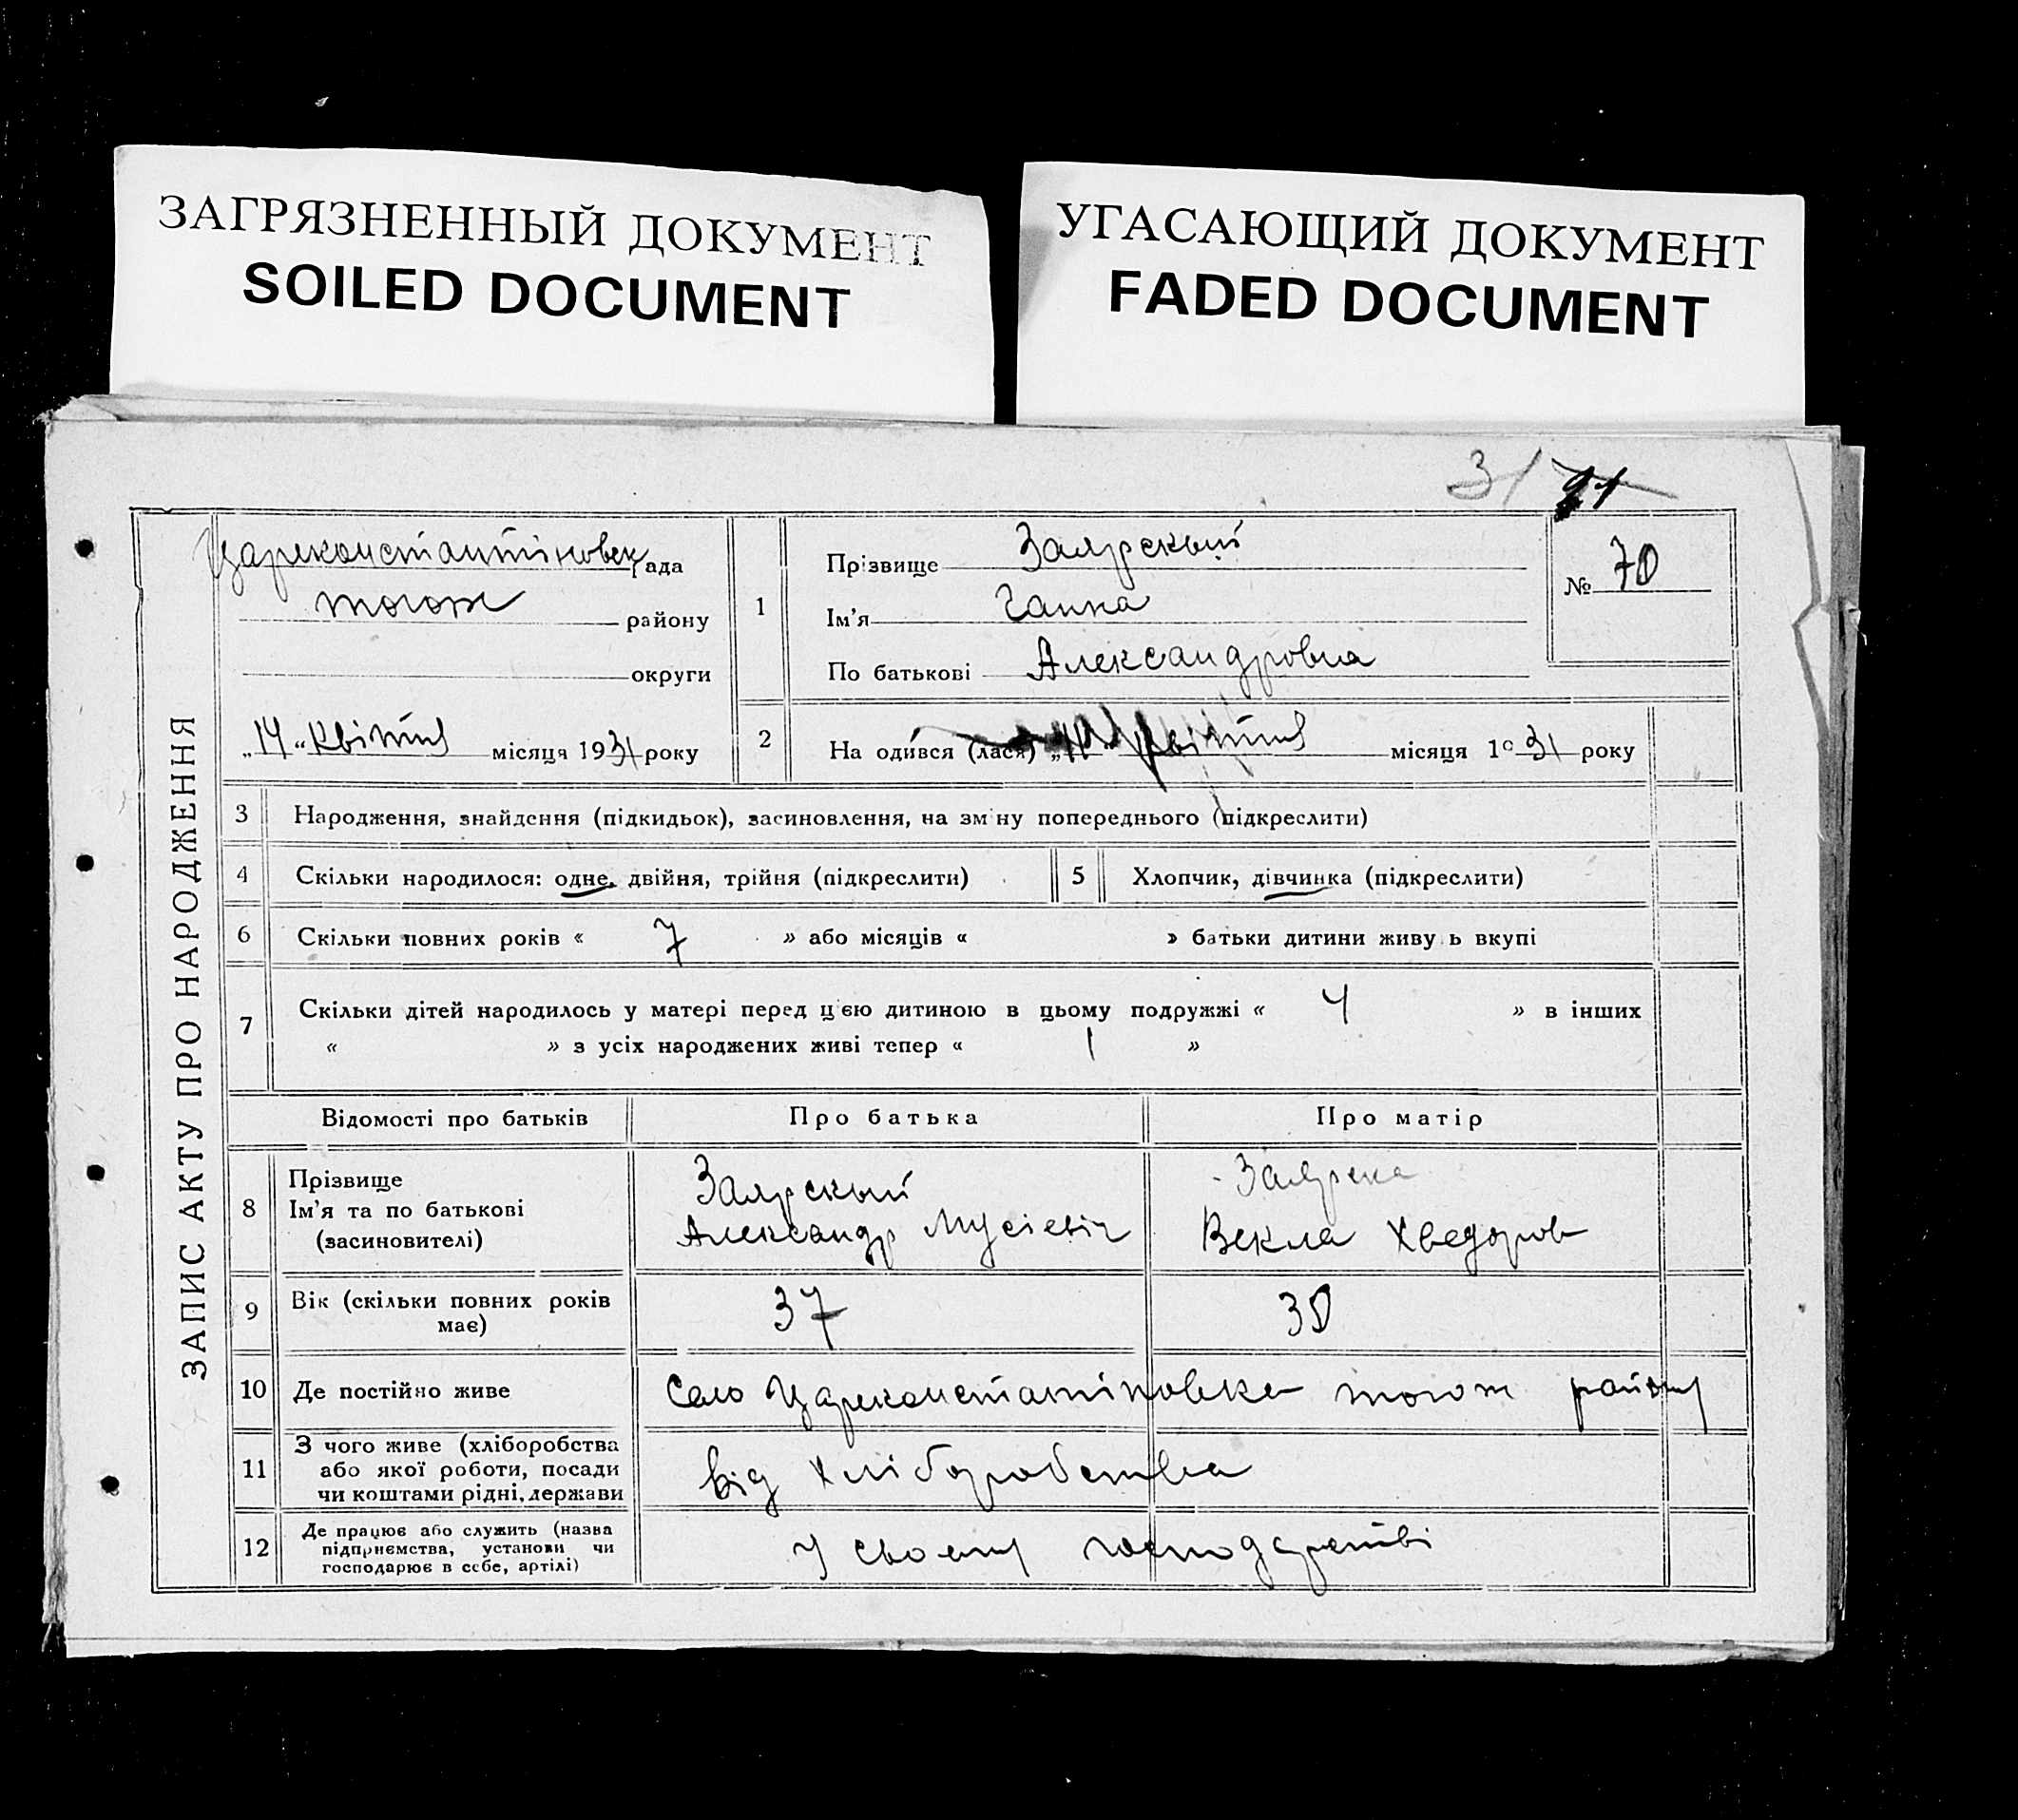 ЗАГРЯЗНЕННЫЙ ДОКУМЕНТ
SOILED DOCUMENT
УГАСАЮЩИЙ ДОКУМЕНТ
FADED DOCUMENT
31 21
ЗАПИС АКТУ ПРО НАРОДЖЕННЯ
Цареконстантіновск рада
тогож району
округи
„14“ квітня місяця 1931 року
1
Прізвище Заярскый
Ім'я Ганна
По батькові Александровна
№ 70
2 На одився (лася) „ “ квітня місяця 1931 року
3 Народження, знайдення (підкидьок), засиновлення, на зм ну попереднього (підкреслити)
4 Скільки народилося: одне, двійня, трійня (підкреслити) 5 Хлопчик, дівчинка (підкреслити)
6 Скільки повних років « 7 » або місяців « » батьки дитини живу ь вкупі
7 Скільки дітей народилось у матері перед ц єю дитиною в цьому подружжі « 4 » в інших
« » з усіх народжених живі тепер « 1 »
Відомості про батьків Про батька Про матір
8 Прізвище Заярскый Заярска
Ім'я та по батькові Александр Мусіевіч Векла Хведоров
(засиновителі)
9 Вік (скільки повних років 37 30
має)
10 Де постійно живе Село Цареконстатіновка тогож району
11 З чого живе (хліборобства
або якої роботи, посади від хліборобства
чи коштами рідні, держави
12 Де працює або служить (назва
підприємства, установи чи у своему господарстві
господарює в себе, артілі)